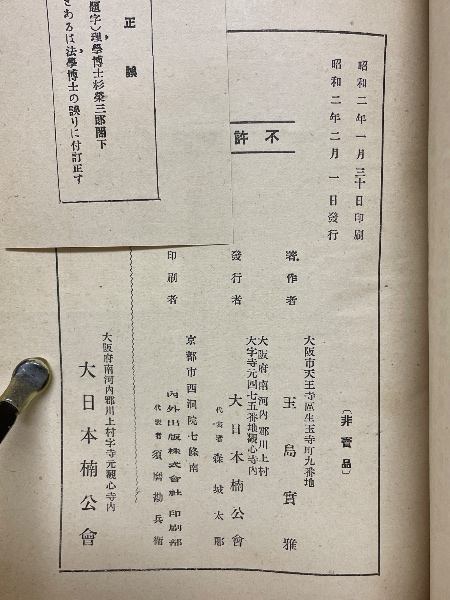 昭和二年一月三十日印刷
昭和二年二月一日發行
不許
(非賣品)
著作者
大阪市天王寺區生玉寺町九番地
玉島實雅
發行者
大阪府南河內郡川上村
大字寺元四七五番地觀心寺內
大日本楠公會
代表者 森城太郎
印刷者
京都市西洞院七條南
內外出版株式會社印刷部
代表者 須磨勘兵衞
大阪府南河內郡川上村字寺元觀心寺內
大日本楠公會
正誤
題字)理學博士杉榮三郎閣下
とあるは法學博士の誤りに付訂正す